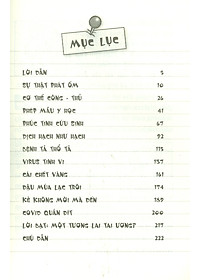 MỤC LỤC
LỜI DẪN 5
SỰ THẬT PHÁT ỐM 10
CƠ THỂ CÔNG - THỦ 26
PHÉP MÀU Y HỌC 41
PHÚC TINH CỨU SINH 67
DỊCH HẠCH NHƯ HẠCH 92
BỆNH TẢ THỔ TẢ 115
VIRUS TINH VI 137
CÁI CHẾT VÀNG 161
ĐẬU MÙA LẠC TRÔI 174
KẺ KHÔNG MỜI MÀ ĐẾN 189
COVID QUẤN DÍT 200
LỜI BẠT: MỘT TƯƠNG LAI TAI ƯƠNG? 217
CHÚ DẪN 222